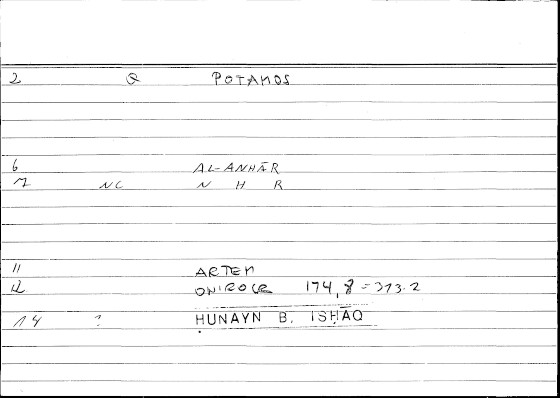 2 Q POTAMOS
6 AL-ANHĀR
7 NC N H R
11 ARTEM
12 ONIROCR 174, 8 = 313.2
14 ? ḤUNAYN B. ISḤĀQ